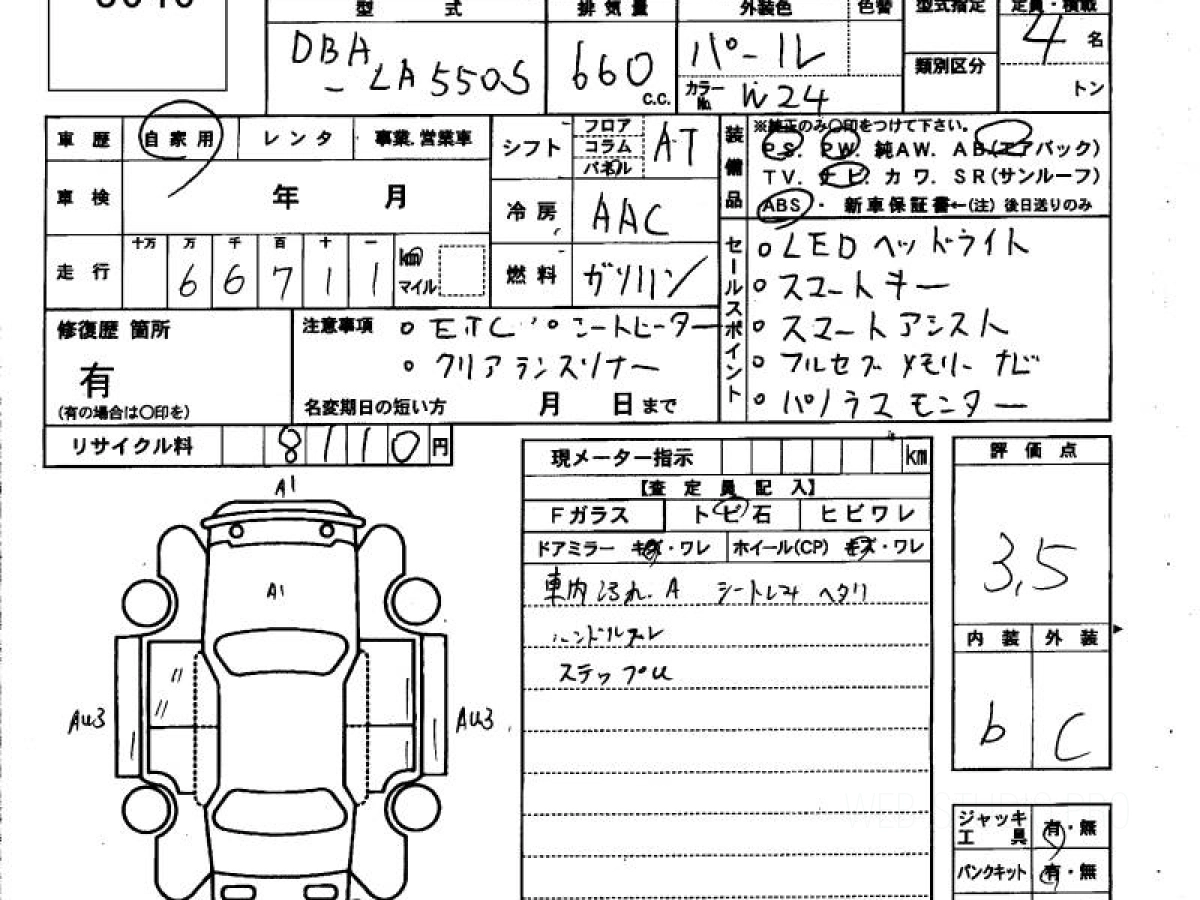 型 式 排気量 外装色 色替 型式指定 定員・積載
DBA
- LA550S
660 C.C.
パール
カラーNo. W24
類別区分
4 名
トン
車歴 自家用 レンタ 事業.営業車
車検 年 月
走行 十万 万 千 百 十 一
6 6 7 1 1 km マイル
シフト フロア コラム パネル AT
冷房 AAC
燃料 ガソリン
装備品
※純正のみ〇印をつけて下さい。
PS. PW. 純AW. AB(エアバック)
TV. ナビ. カワ. SR(サンルーフ)
ABS・ 新車保証書←(注) 後日送りのみ
セールスポイント
○ LEDヘッドライト
○ スマートキー
○ スマートアシスト
○ フルセグメモリーナビ
○ パノラマモニター
修復歴 箇所
有
(有の場合は〇印を)
注意事項 ○ ETC ○ シートヒーター
○ クリアランスソナー
名変期日の短い方 月 日まで
リサイクル料 8110 円
現メーター指示 km
【査定員記入】
Fガラス トビ石 ヒビワレ
ドアミラー キズ・ワレ ホイール(CP) キズ・ワレ
車内汚れ.A シートレザー ヘタリ
ハンドルスレ
ステップU
評価点
3.5
内装 外装
b C
ジャッキ工具 有・無
パンクキット 有・無
A1
A1
AU3
AU3